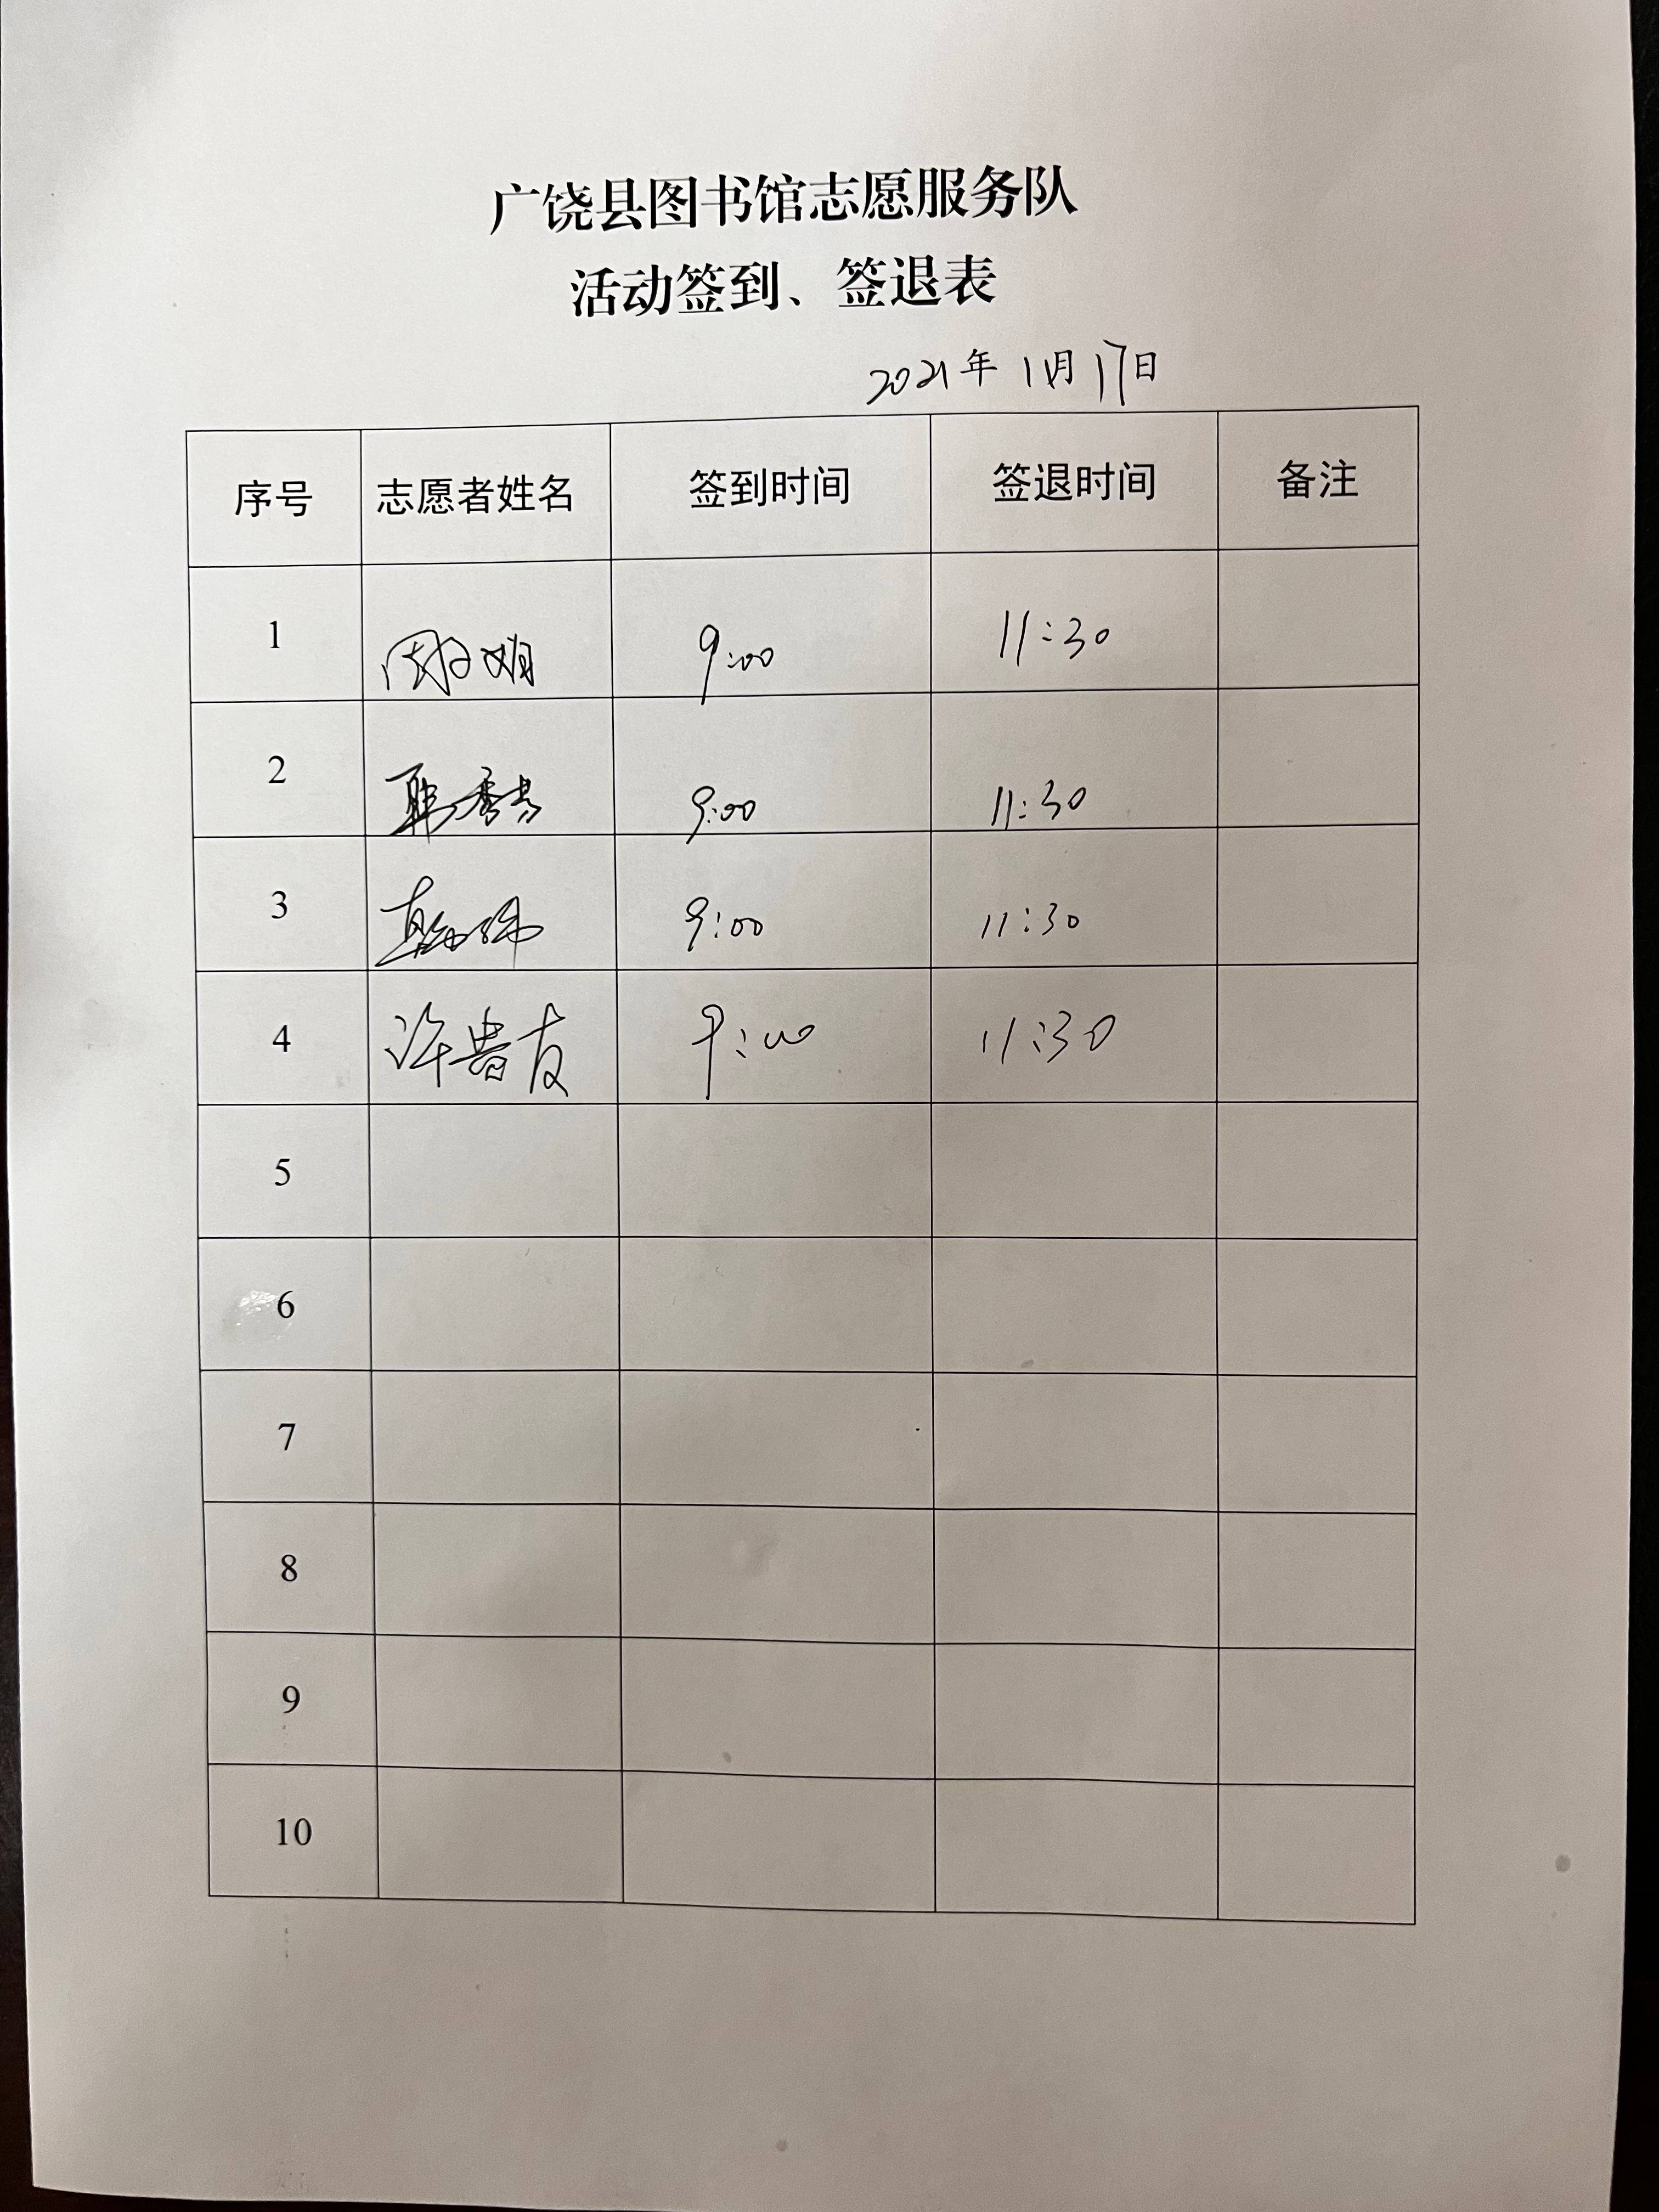 广饶县图书馆志愿服务队
活动签到、签退表
2021年 1月 17日
序号 志愿者姓名 签到时间 签退时间 备注
1 9:00 11:30
2 9:00 11:30
3 9:00 11:30
4 许贵友 9:00 11:30
5
6
7
8
9
10